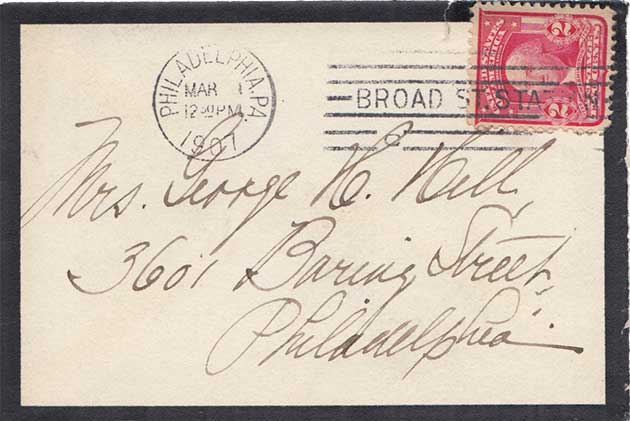 PHILADELPHIA, PA.
MAR 1
12-30 PM
1907
BROAD ST. STATION
2 2
Mrs. George H. Hill,
3601 Baring Street,
Philadelphia.